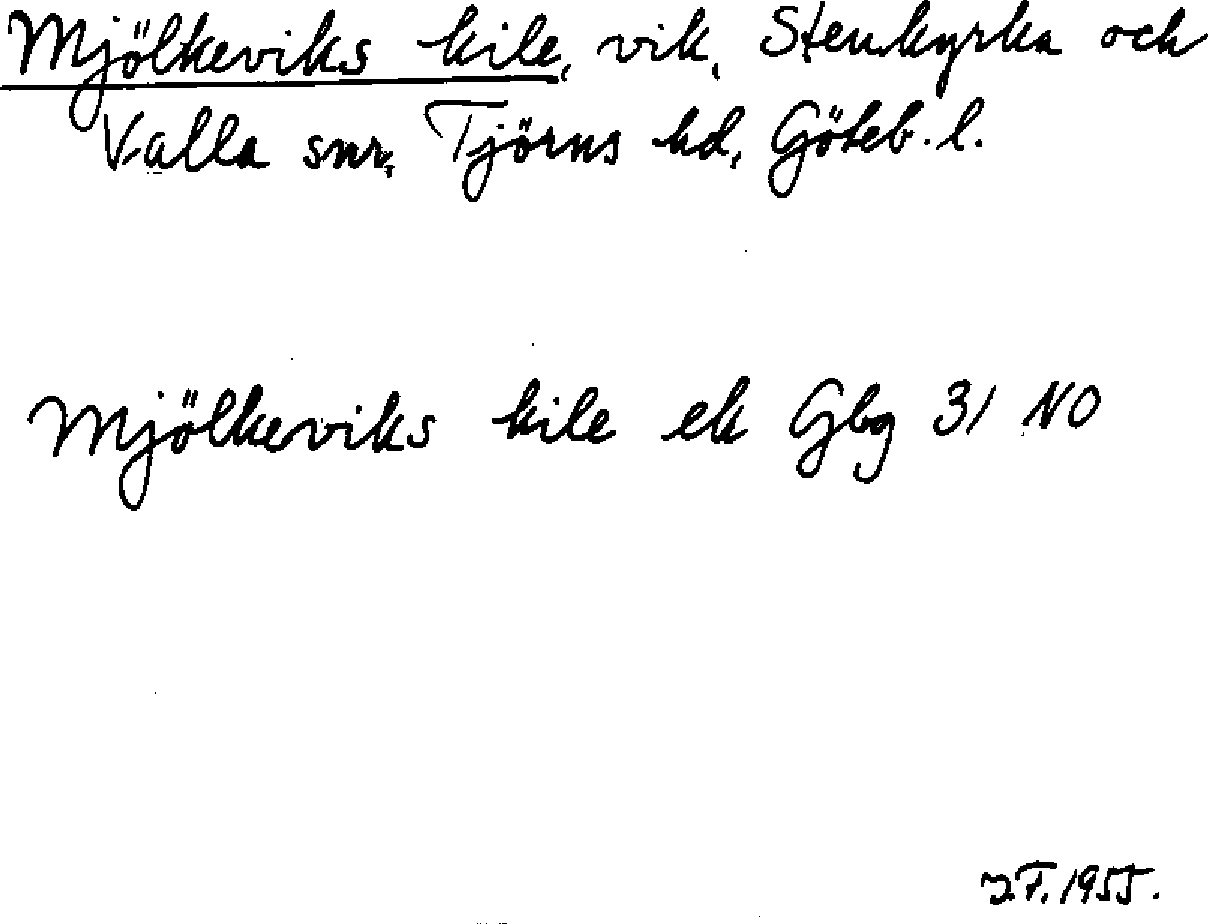 Mjölkeviks kile, vik, Stenkyrka och
Valla snr, Tjörns hd, Göteb. l.
Mjölkeviks kile ek Gbg 31 NO
J.F. 1955.